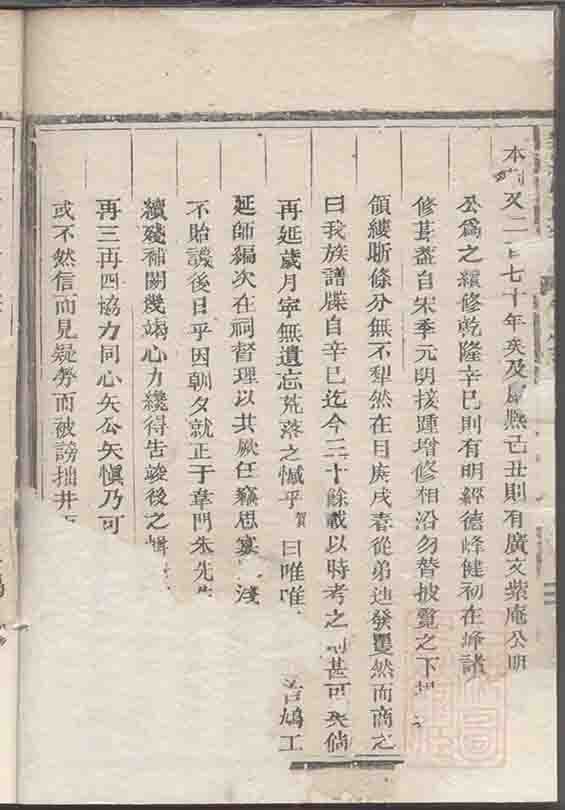 本 又二 七十年矣及 熙己丑則有廣文紫庵公明
公爲之續修乾隆辛巳則有明經德峰健初在峰諸
修葺蓋自宋季元明接踵增修相沿勿替披覽之下
領縷晣條分無不犁然在目庚戌春從弟迪發蹙然而商之
曰我族譜牒自辛巳迄今三十餘載以時考之 甚可矣倘
再延歲月寧無遺忘荒落之憾乎賀曰唯唯 鳩工
延師編次在祠督理以共厥任竊思 淺
不貽譏後日乎因朝夕就正于章門朱先
續殘補闕幾竭心力纔得告竣後之輯
再三再四協力同心矢公矢愼乃可
或不然信而見疑勞而被謗拙井